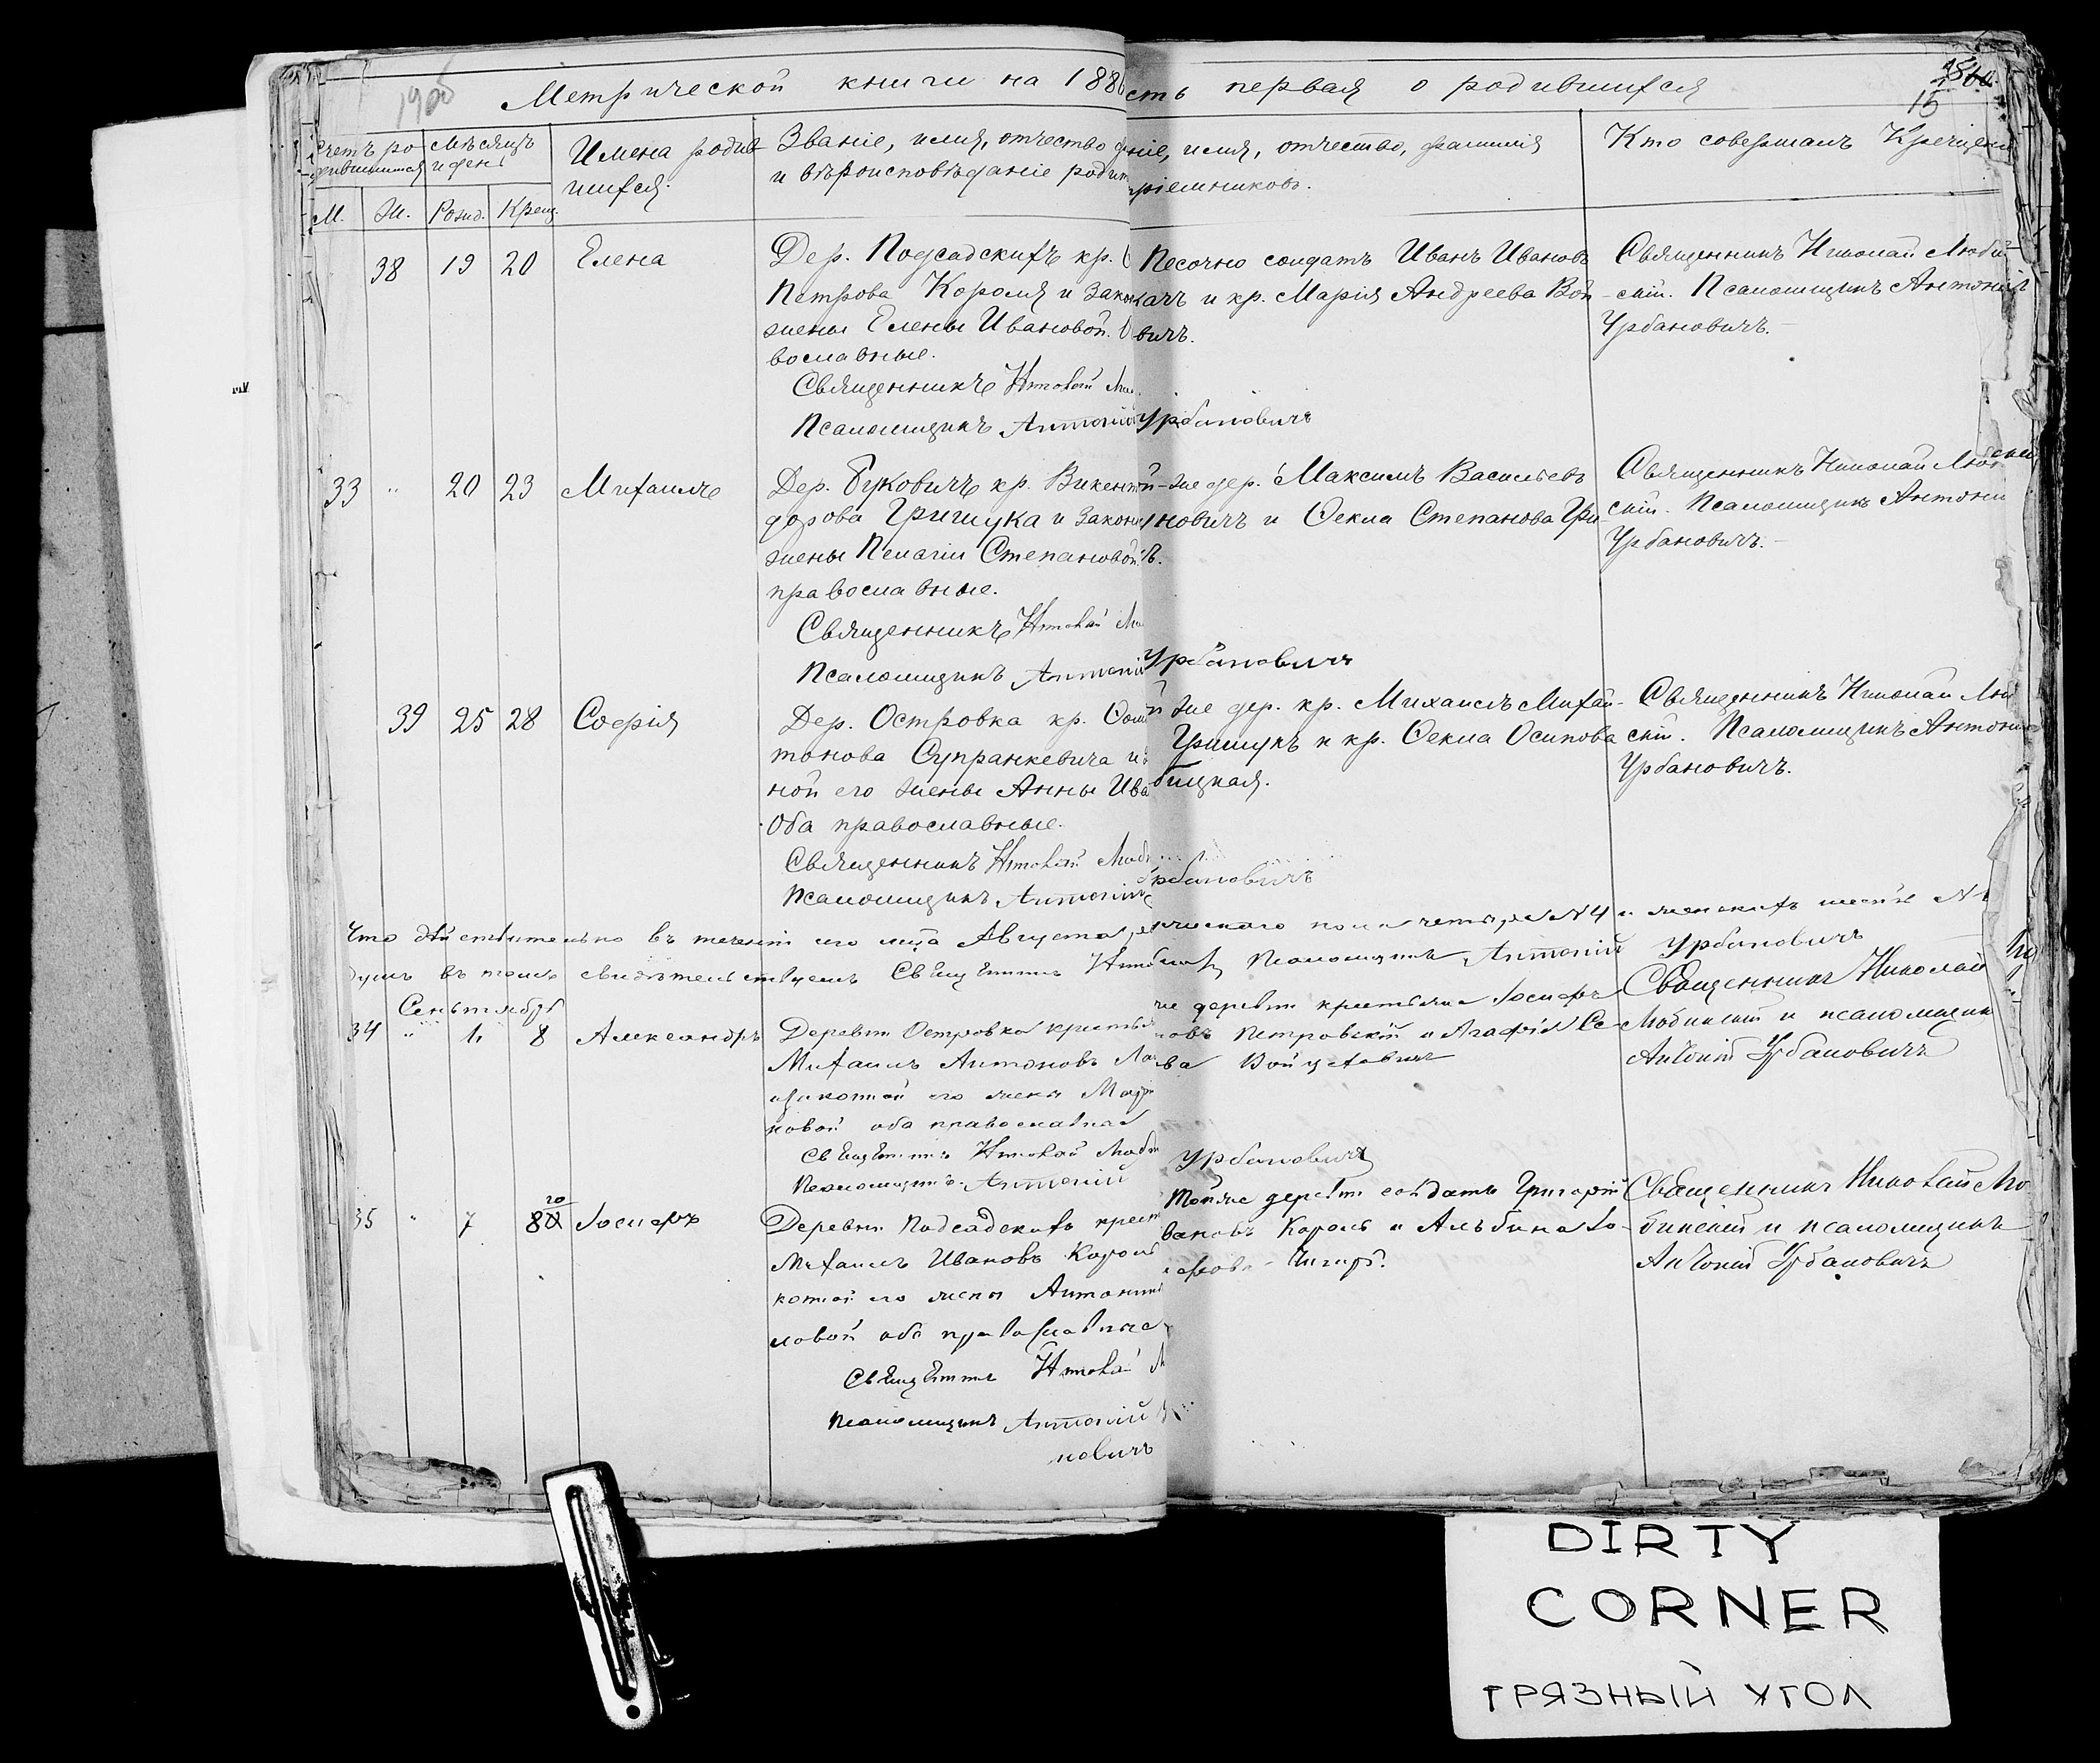 Метрической книги на 188
сть первая о родившихся
15
Счетъ ро- Мѣсяцъ
дившихся и день
Имена родив-
шихся.
Званіе, имя, отчество
и вѣроисповѣданіе родит
М. Ж. Рожд. Крещ.
ніе, имя, отчество, фамилія
пріемниковъ.
Кто совершалъ Крещені
38 19 20 Елена
Дер. Подсадскихъ кр.
Петрова Короля и закон
жены Елены Ивановой.
вославные.
Священникъ Николай
Псаломщикъ Антоній
Песочно солдатъ Иванъ Ивановъ
и кр. Марія Андреева Вой
вичъ.
Урбановичъ
Священникъ Николай Люби
скій. Псаломщикъ Антоній
Урбановичъ.
33 " 20 23 Михаилъ
Дер. Буковичъ кр. Викентій
дорова Грищука и закон
жены Пелагіи Степановой.
православные.
Священникъ Николай
Псаломщикъ Антоній
же дер. Максимъ Васильевъ
новичъ и Ѳекла Степанова Гри
Урбановичъ
Священникъ Николай Люб
скій. Псаломщикъ Антоні
Урбановичъ.
39 25 28 Софія
Дер. Островка кр. Ѳом
тонова Супранкевича и
ной его жены Анны Ива
Оба православные.
Священникъ Николай Люб
Псаломщикъ Антоній
же дер. кр. Михаилъ Михай-
Грищукъ и кр. Ѳекла Осипова
бицкая.
Урбановичъ
Священникъ Николай Лю
скій. Псаломщикъ Антоні
Урбановичъ.
Что дѣйствительно въ теченіи сего мѣсяца Августа
ческаго пола четыре № 4 и женскихъ шесть №
въ томъ свидѣтельствуемъ Священникъ Николай
Псаломщикъ Антоній Урбановичъ
Сентябрь
34 " 1. 8 Александръ
Деревни Островка крестья
Михаилъ Антоновъ
законной его жены Мар
новой оба православные
Священникъ Николай Люб
Псаломщикъ Антоній
же деревни крестьянинъ Іосифъ
новъ Петровскій и Агафія Се
ва Войцеховичъ
Урбановичъ
Священникъ Николай
Любинскій и псаломщикъ
Антоній Урбановичъ
35 " 7 8 20 Іосифъ
Деревни Подсадскихъ крест
Михаилъ Ивановъ Король
конной его жены Антонины
ловой оба православные
Священникъ Николай
Псаломщикъ Антоній
новичъ
Той же деревни солдатъ Григорій
вановъ Король и Альбина Іо-
сифова
Священникъ Николай Лю
бинскій и псаломщикъ
Антоній Урбановичъ
DIRTY
CORNER
ГРЯЗНЫЙ УГОЛ